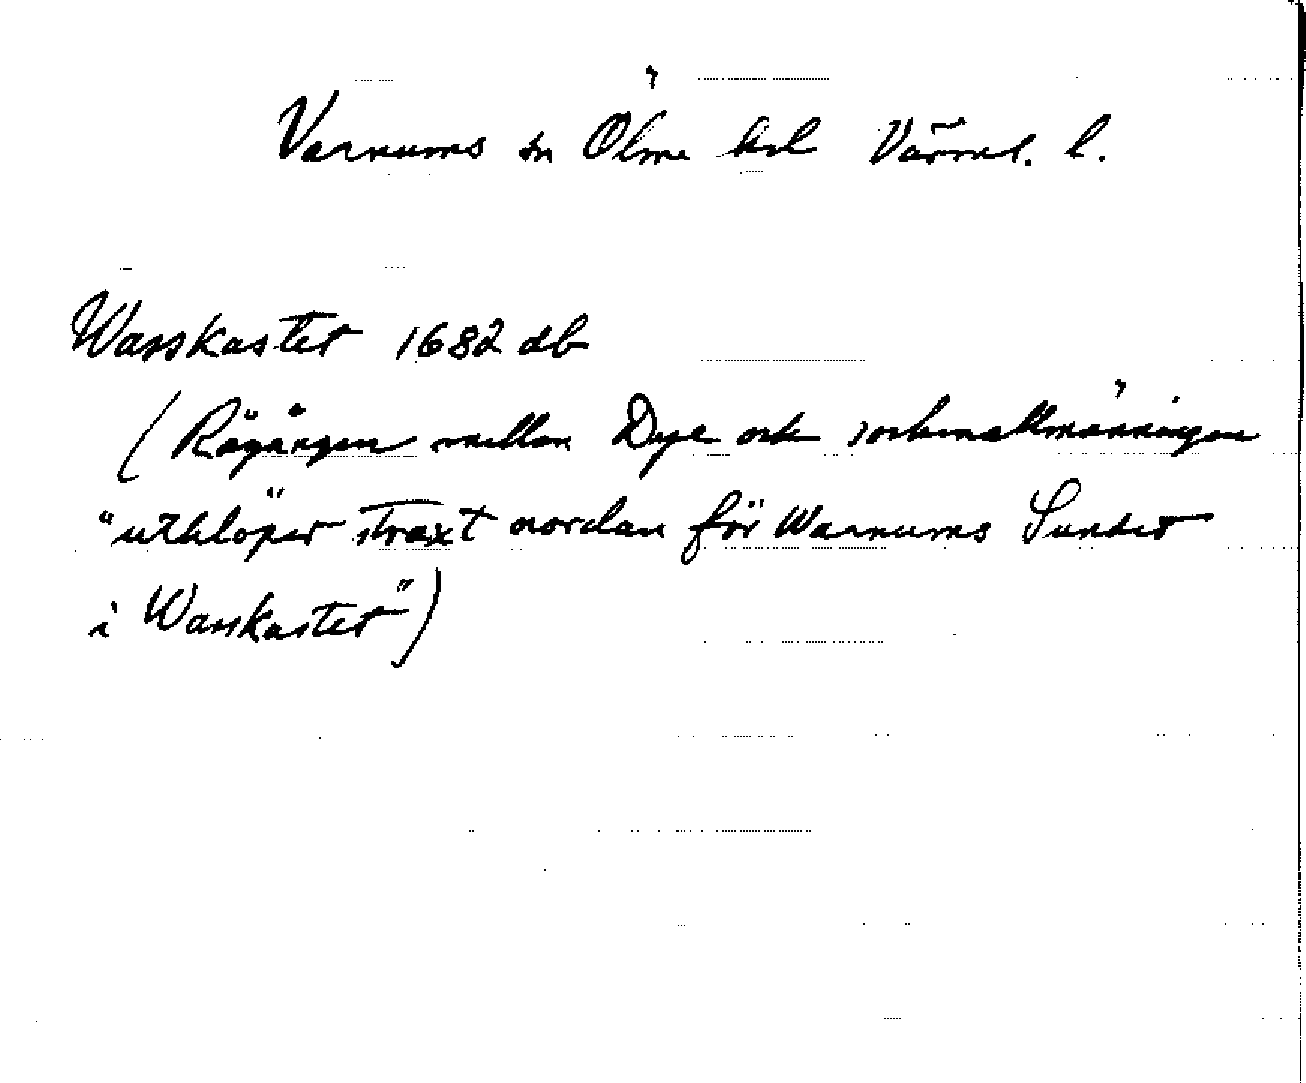 Varnums sn Ölme hd Värml. l.
Wasskastet 1682 db
(Rågången mellan Dye och sockenallmänningen
"uthlöper straxt nordan för Warnums Sundet
i Wasskastet")